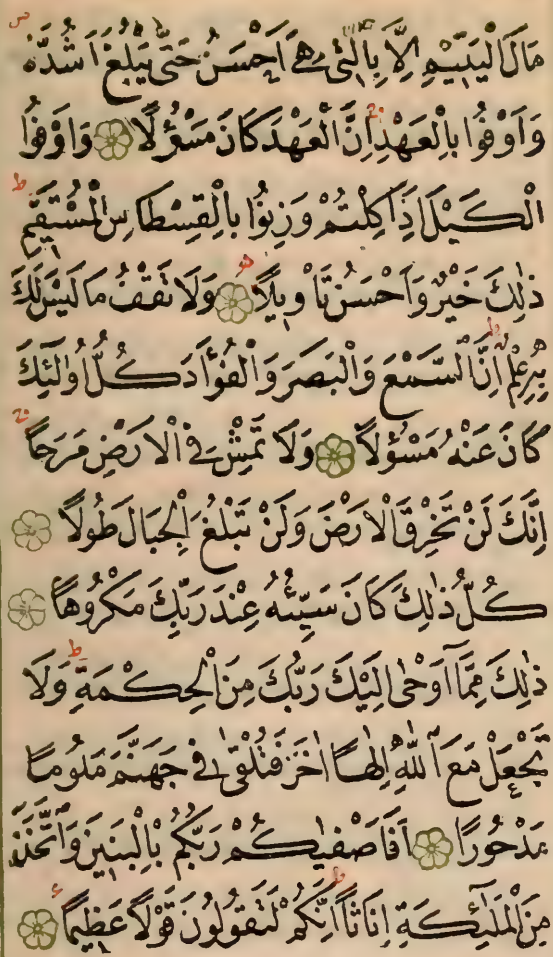 مَالَ الْيَتِيمِ اِلَّا بِالَّتِي هِيَ اَحْسَنُ حَتّٰى يَبْلُغَ اَشُدَّهُ
وَاَوْفُوا بِالْعَهْدِ اِنَّ الْعَهْدَ كَانَ مَسْؤُلًا وَاَوْفُوا
الْكَيْلَ اِذَا كِلْتُمْ وَزِنُوا بِالْقِسْطَاسِ الْمُسْتَقِيمِ
ذٰلِكَ خَيْرٌ وَاَحْسَنُ تَاْوِيلًا وَلَا تَقْفُ مَا لَيْسَ لَكَ
بِهِ عِلْمٌ اِنَّ السَّمْعَ وَالْبَصَرَ وَالْفُؤَادَ كُلُّ اُولٰئِكَ
كَانَ عَنْهُ مَسْؤُلًا وَلَا تَمْشِ فِي الْاَرْضِ مَرَحًا
اِنَّكَ لَنْ تَخْرِقَ الْاَرْضَ وَلَنْ تَبْلُغَ الْجِبَالَ طُولًا
كُلُّ ذٰلِكَ كَانَ سَيِّئُهُ عِنْدَ رَبِّكَ مَكْرُوهًا
ذٰلِكَ مِمَّا اَوْحٰى اِلَيْكَ رَبُّكَ مِنَ الْحِكْمَةِ وَلَا
تَجْعَلْ مَعَ اللّٰهِ اِلٰهًا اٰخَرَ فَتُلْقٰى فِي جَهَنَّمَ مَلُومًا
مَدْحُورًا اَفَاَصْفٰيكُمْ رَبُّكُمْ بِالْبَنِينَ وَاتَّخَذَ
مِنَ الْمَلٰئِكَةِ اِنَاثًا اِنَّكُمْ لَتَقُولُونَ قَوْلًا عَظِيمًا